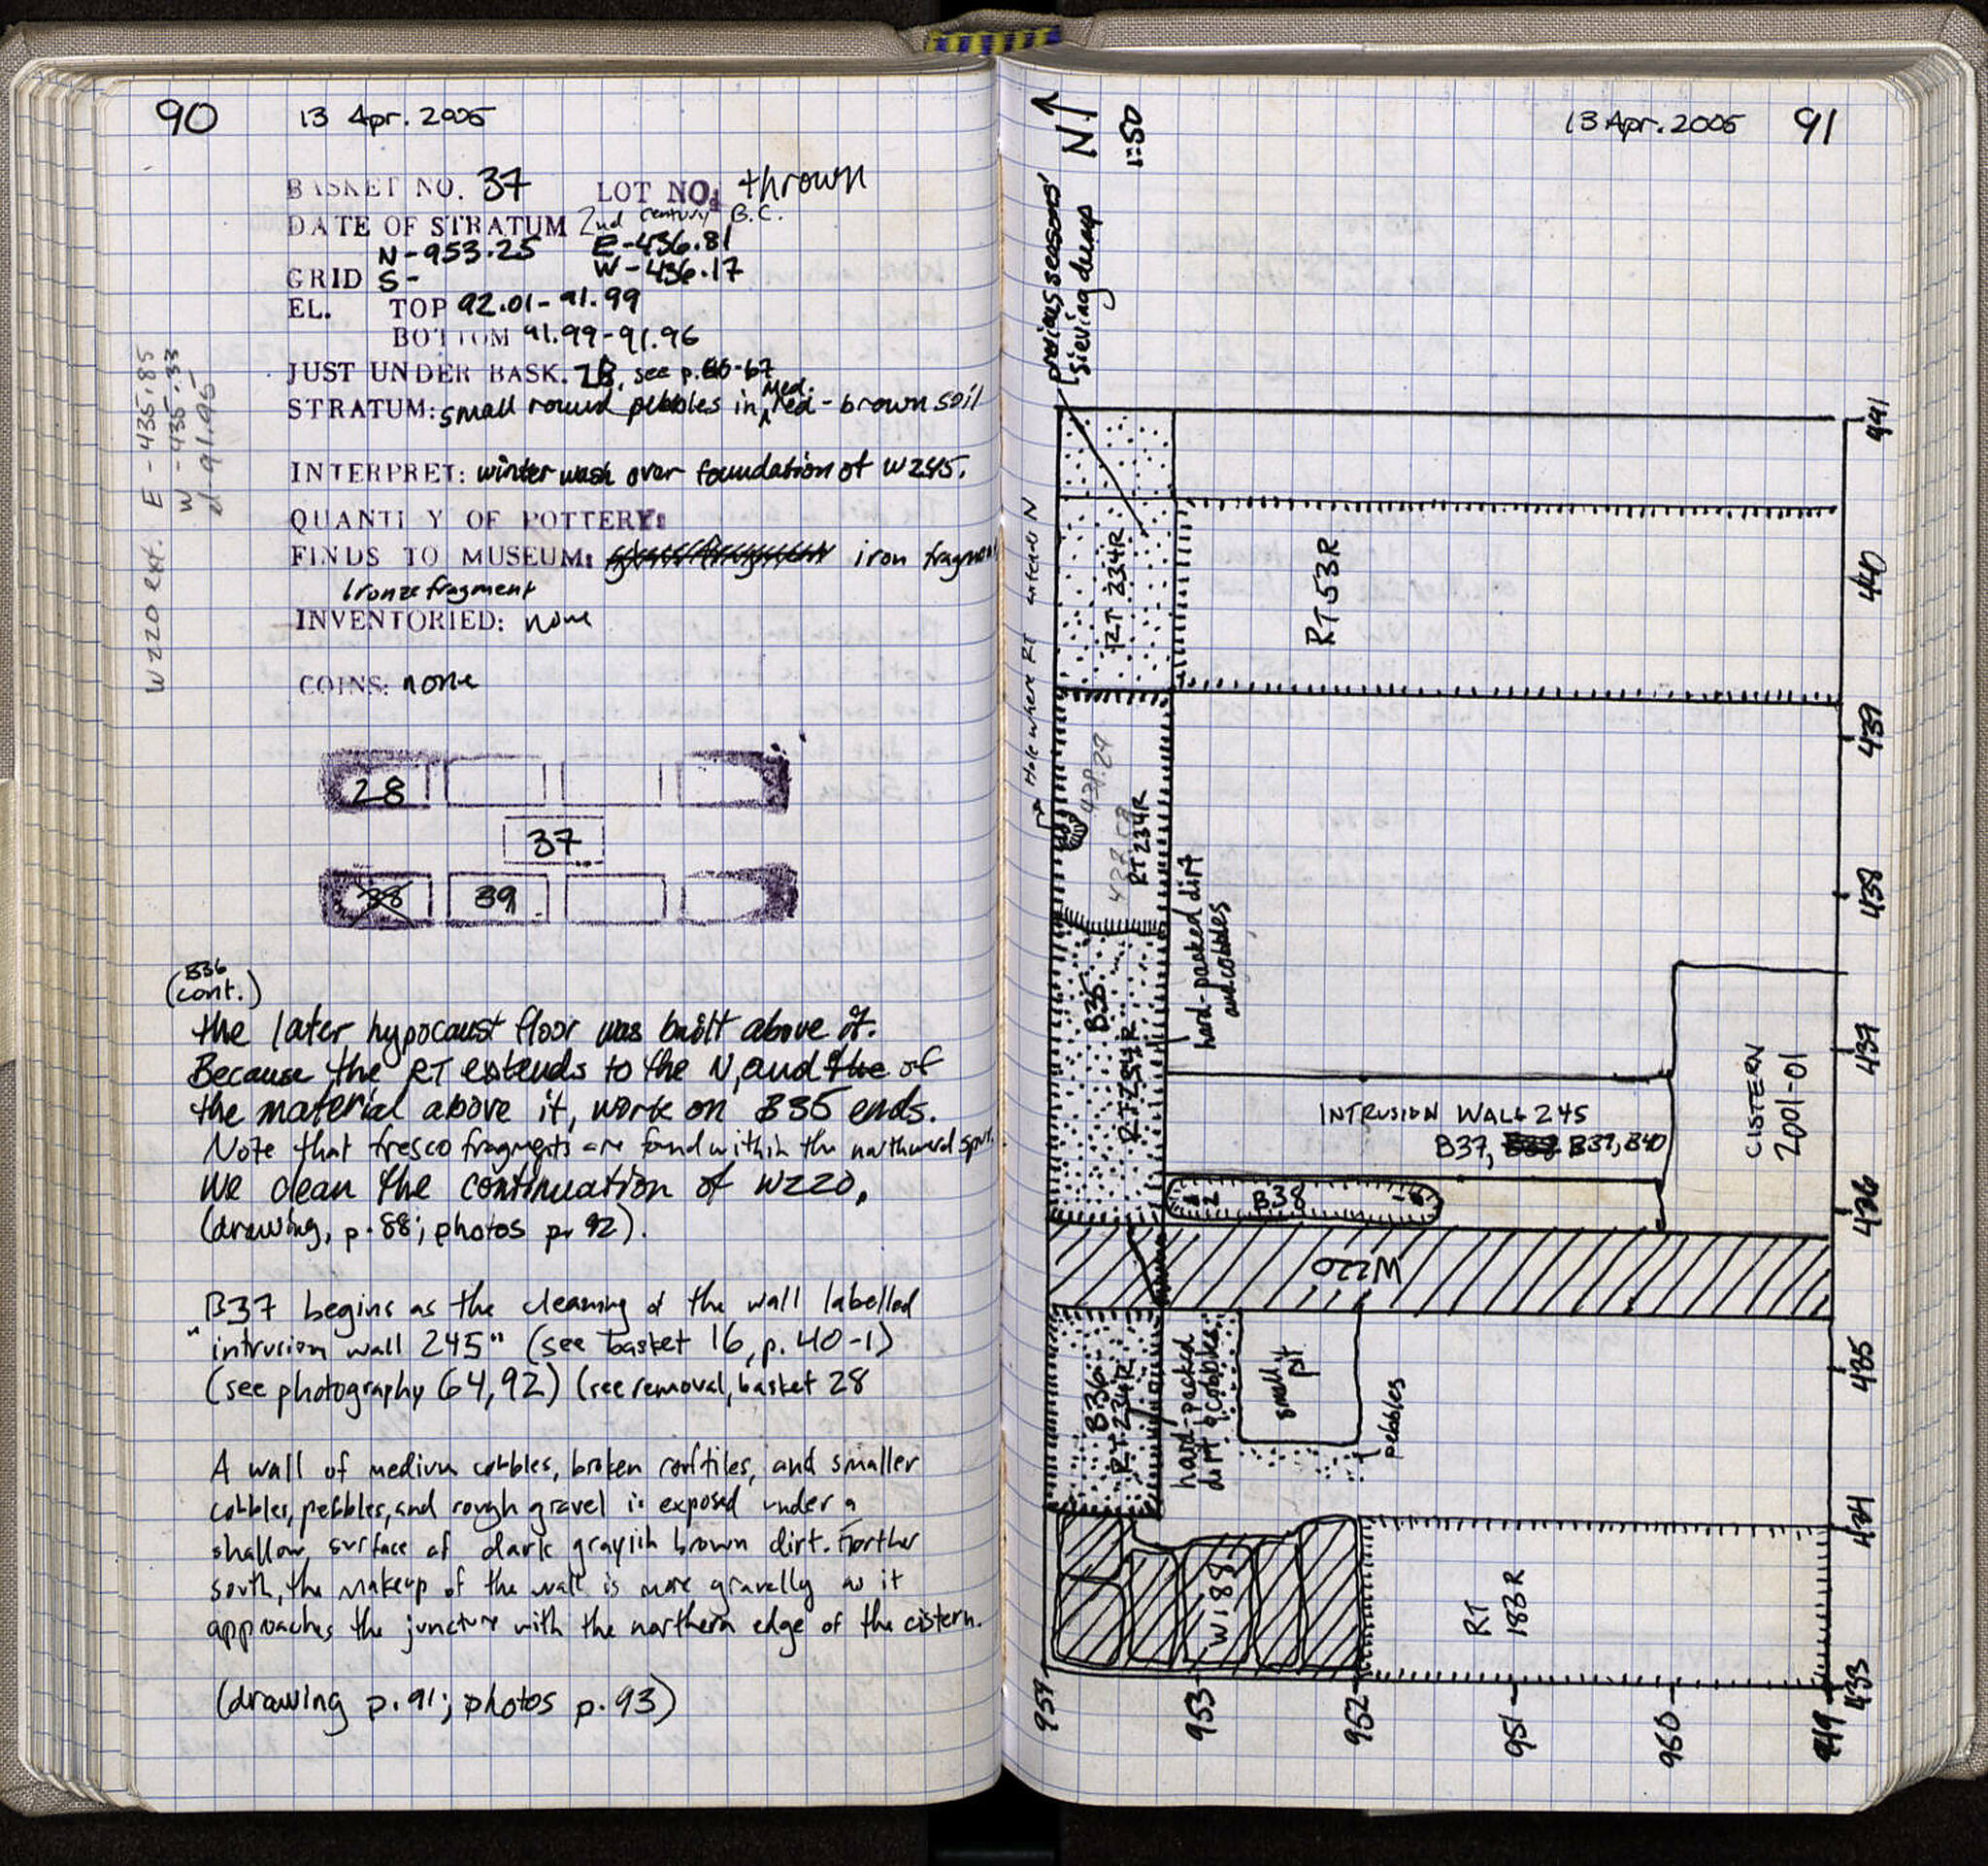 90
13 Apr. 2005
BASKET NO. 37 LOT NO. thrown
DATE OF STRATUM 2nd century B.C.
N-953.25 E-436.81
GRID S- W-436.17
EL. TOP 92.01-91.99
BOTTOM 91.99-91.96
JUST UNDER BASK. 28, see p. 66-67
STRATUM: small round pebbles in Med. red-brown soil
INTERPRET: winter wash over foundation of W245.
QUANTITY OF POTTERY:
FINDS TO MUSEUM: iron fragment
bronze fragment
INVENTORIED: none
COINS: none
W220 ext. E-435.85
W-435.33
el-91.95
28
37
38 39
(B36 cont.)
the later hypocaust floor was built above it.
Because the RT extends to the N, and the of
the material above it, work on B35 ends.
Note that fresco fragments are found within the northward spur.
We clean the continuation of W220,
(drawing, p. 88; photos p. 92).
B37 begins as the cleaning of the wall labelled
"intrusion wall 245" (see basket 16, p. 40-1)
(see photography 64, 92) (see removal, basket 28
A wall of medium cobbles, broken rooftiles, and smaller
cobbles, pebbles, and rough gravel is exposed under a
shallow surface of dark grayish brown dirt. Further
south, the makeup of the wall is more gravelly as it
approaches the juncture with the northern edge of the cistern.
(drawing p. 91; photos p. 93)
13 Apr. 2005 91
N
1:50
previous seasons'
sieving dump
Hole where RT extends N
RT 234R
RT53R
438.29
RT 234R
hard-packed dirt
and cobbles
B35
RT234R
INTRUSION WALL 245
B37, B38 B39, B40
CISTERN
2001-01
B38
W220
B36
RT 234R
hard-packed
dirt & cobbles
small
pit
pebbles
W188
RT
183R
441
440
439
438
437
436
435
434
433
954
953
952
951
950
949